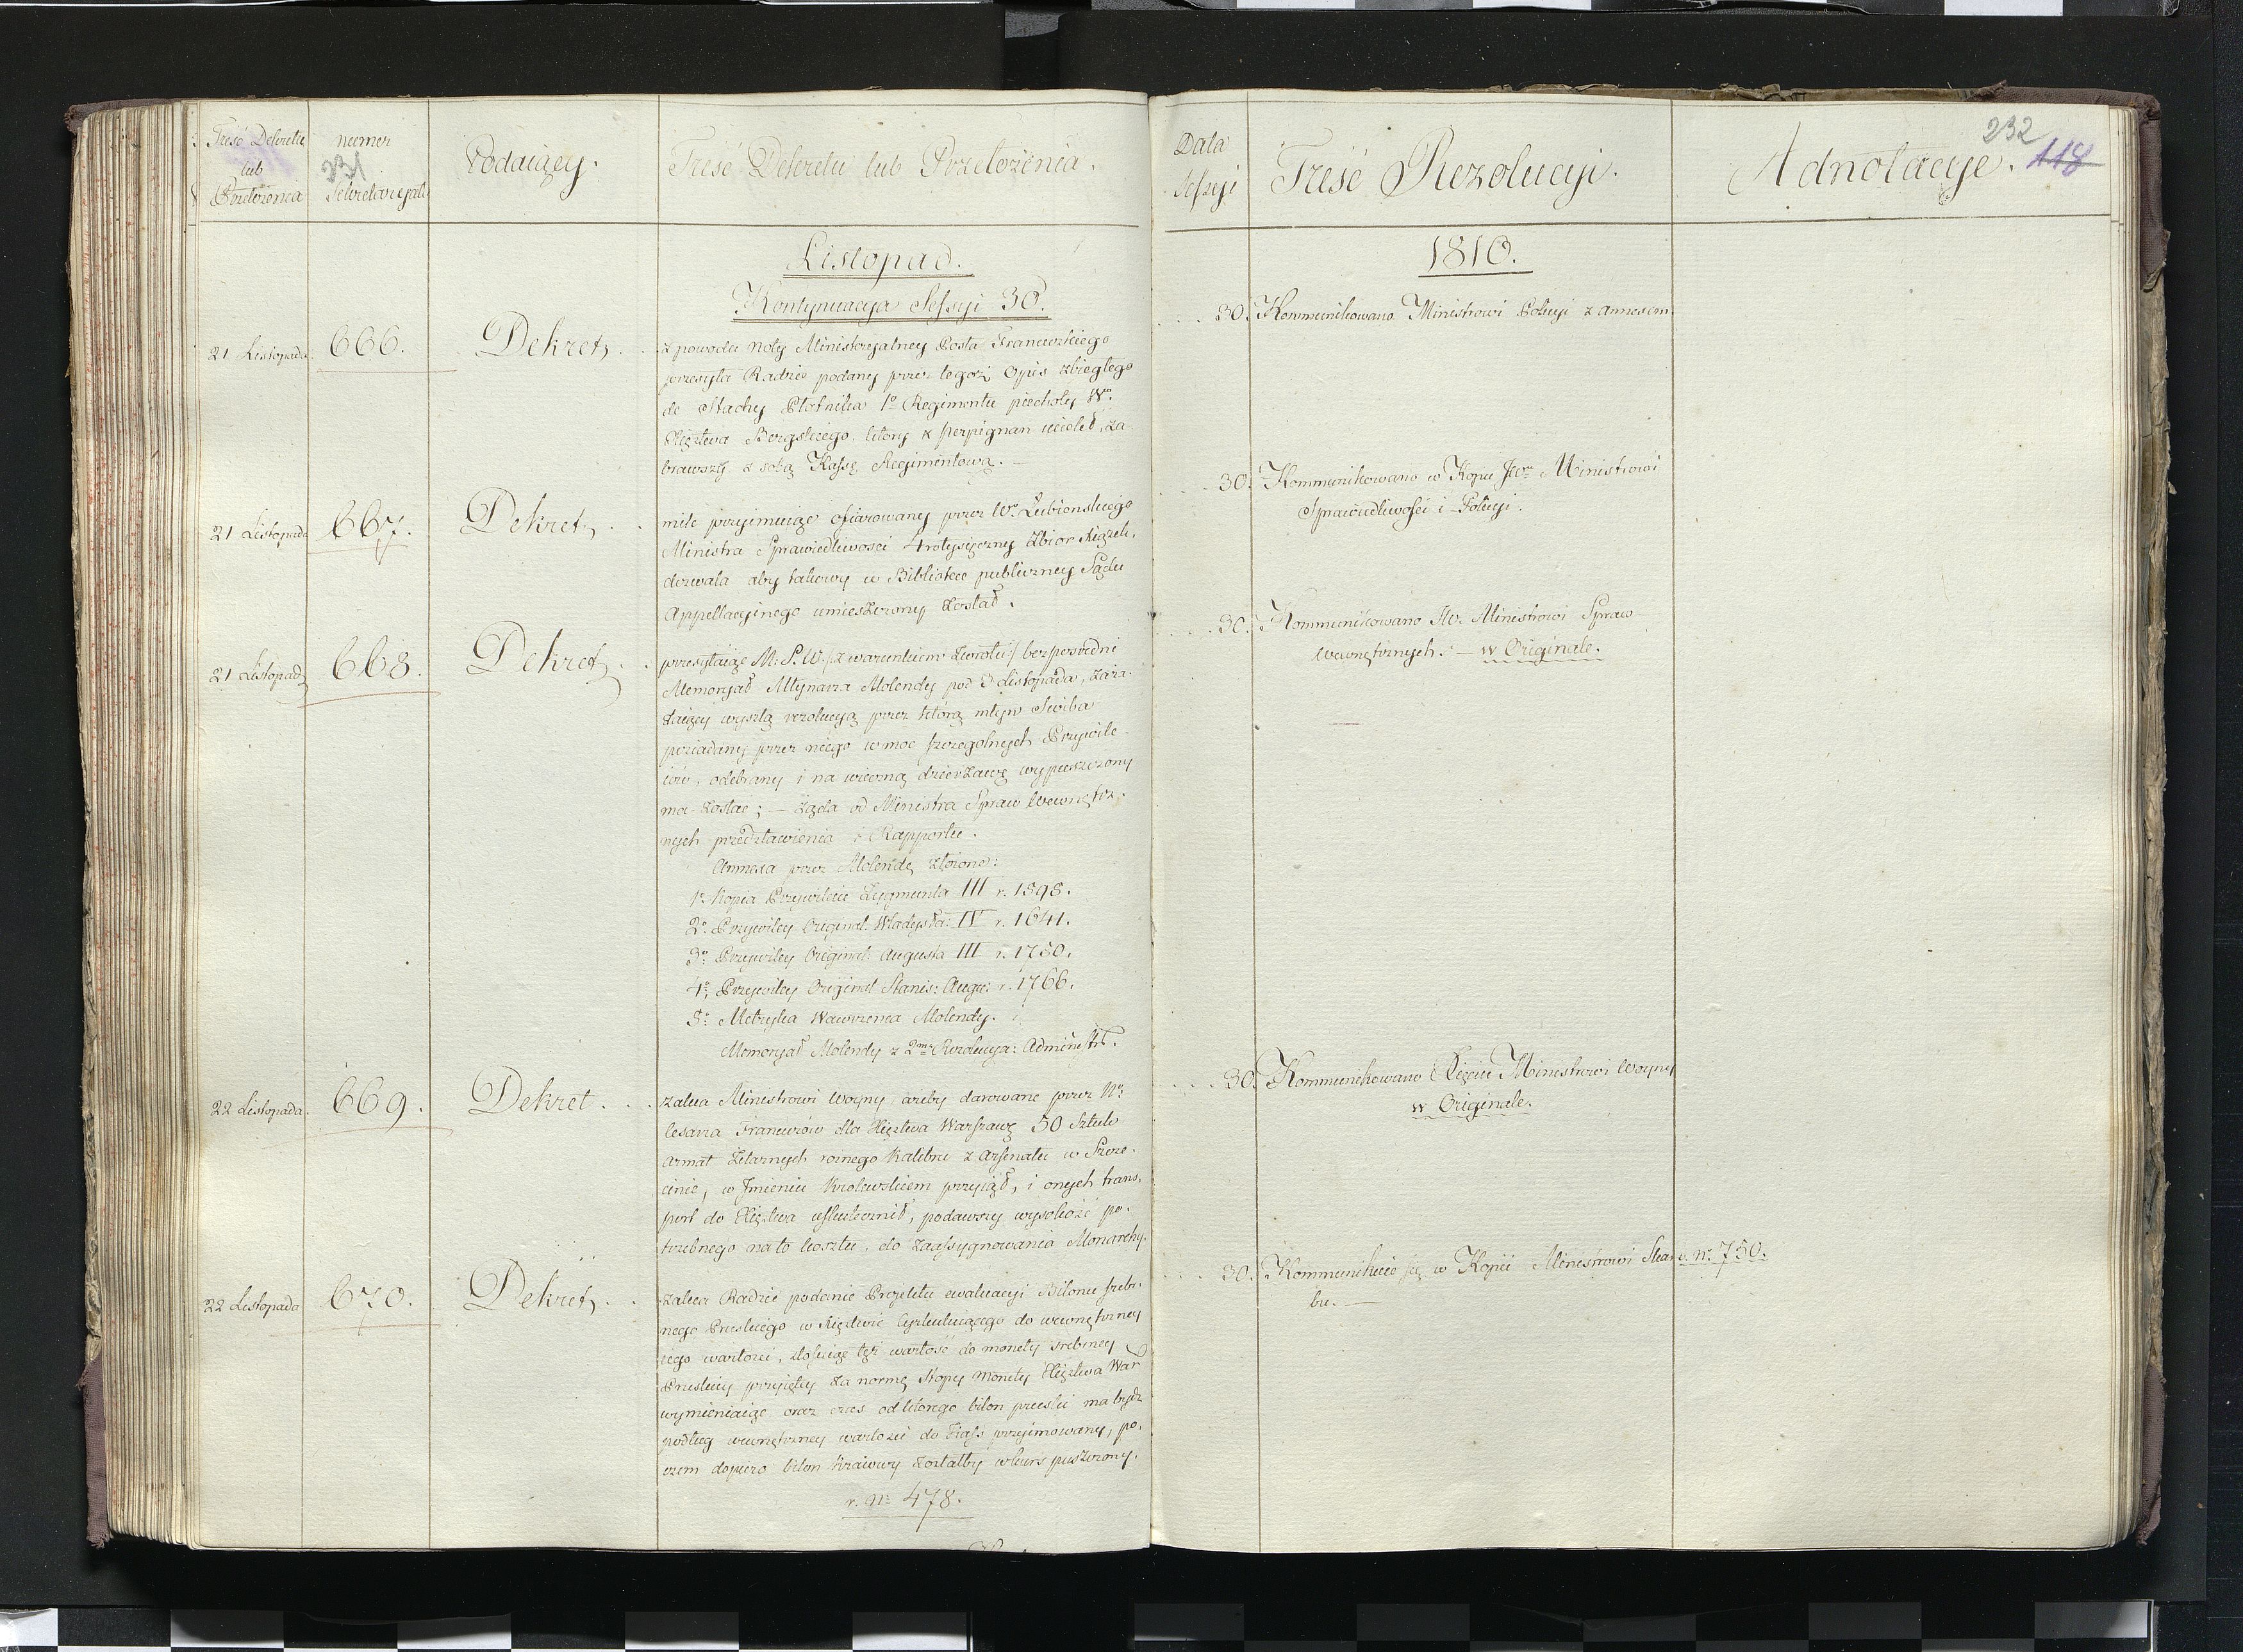 Treść Dekretu
lub
Przełożenia
numer
231
Sekretaryatu
Podaiący.
Treść Dekretu lub Przełożenia.
Data
Sessyi
Treść Rezolucyi.
Adnotacye.
232
118
Listopad.
1810.
Kontynuacya Sessyi 30.
21 Listopada.
666.
Dekret
z powodu Noty Ministeryalney Posła Francuzkiego
przesyła Radzie podany przez tegoż Opis zbiegłego
de Stachy Płotnika 1o Regimentu piechoty Wo.
Xięztwa Bergskiego, który z Perpignan uciekł, za-
brawszy z sobą Kassę Regimentową. —
30. Kommunikowano Ministrowi Policyi z annexem.
21 Listopada
667.
Dekret
mile przyimuiąc ofiarowany przez Wo. Łubienskiego
Ministra Sprawiedliwosci 4rotysięczny Zbior Xiążek,
dozwala aby takowy w Bibliotece publiczney Sądu
Appellacyinego umieszczony został.
30. Kommunikowano w Kopii JWu Ministrowi
Sprawiedliwości i Policyi.
21 Listopad
668.
Dekret
przesyłaiąc M: S. W. /: z warunkiem zwrotu :/ bezposredni
Memoryał Młynarza Molendy pod 3 Listopada, zaża-
laiący wyszłą rezolucyą przez którą młyn Swiba
posiadany przez niego w moc szczegolnych Przywile-
iów, odebrany i na wieczną dzierżawę wypuszczony
ma zostać; — żąda od Ministra Spraw Wewnętrz-
nych przedstawienia i Rapportu.
Annexa przez Molendę złożone:
1o Kopia Przywileiu Zygmunta III r. 1598.
2o. Przywiley Original. Władysła: IV r. 1641.
3o Przywiley Original: Augusta III r. 1750.
4o, Przywiley Original Stanis: Augu: r. 1766.
5o: Metryka Wawrzenca Molendy. i
Memoryał Molendy z 2ma Rezolucya: Administr.
30. Kommunikowano JW. Ministrowi Spraw
Wewnętrznych. — w Originale.
22 Listopada.
669.
Dekret
zaleca Ministrowi Woyny ażeby darowane przez No
Cesarza Francuzów dla Xięztwa Warszawsk 50 Sztuk
Armat żelaznych rożnego Kalibru z Arsenału w Szcze-
cinie, w Jmieniu Krolewskiem przyiął, i onych trans-
port do Xięztwa uskutecznił, podawszy wysokość po-
trzebnego na to kosztu, do zaassygnowania Monarchy.
30. Kommunikowano Xięciu Ministrowi Woyny
w Originale.
22 Listopada
670.
Dekret
zaleca Radzie podanie Projektu ewaluacyi Bilonu srebr-
nego Pruskiego w Xięztwie Cyrkuluiącego do wewnętrzney
iego wartości, stosuiąc też wartość do monety srebrney
Pruskiey przyiętey za normę stopy monety Xięztwa War
wymieniaiąc oraz czas od ktorego bilon pruski ma bydź
podług wewnętrzney wartości do Kass przyimowany, po-
czem dopiero bilon Kraiowy zostałby w kurs puszczony.
r. No 478.
30. Kommunikuie się w Kopii Ministrowi Skar-
bu. —
v. No. 750.